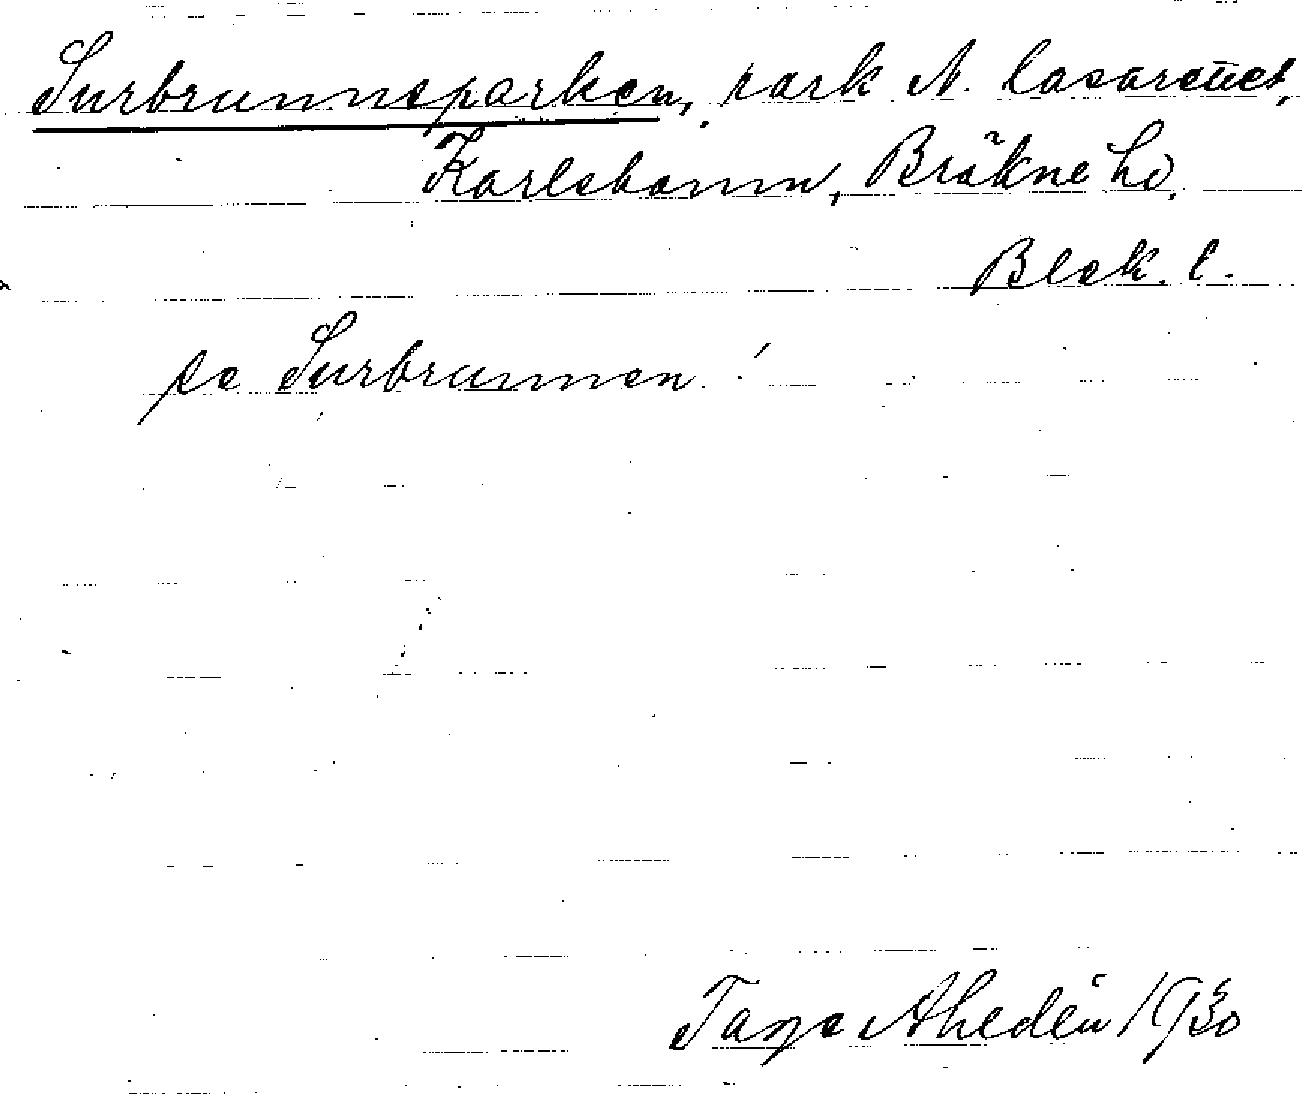 Surbrunnsparken, park N. lasarettet,
Karlshamn, Bräkne hd.
Blek. l.
se Surbrunnen!
Tage Ahedén 1930